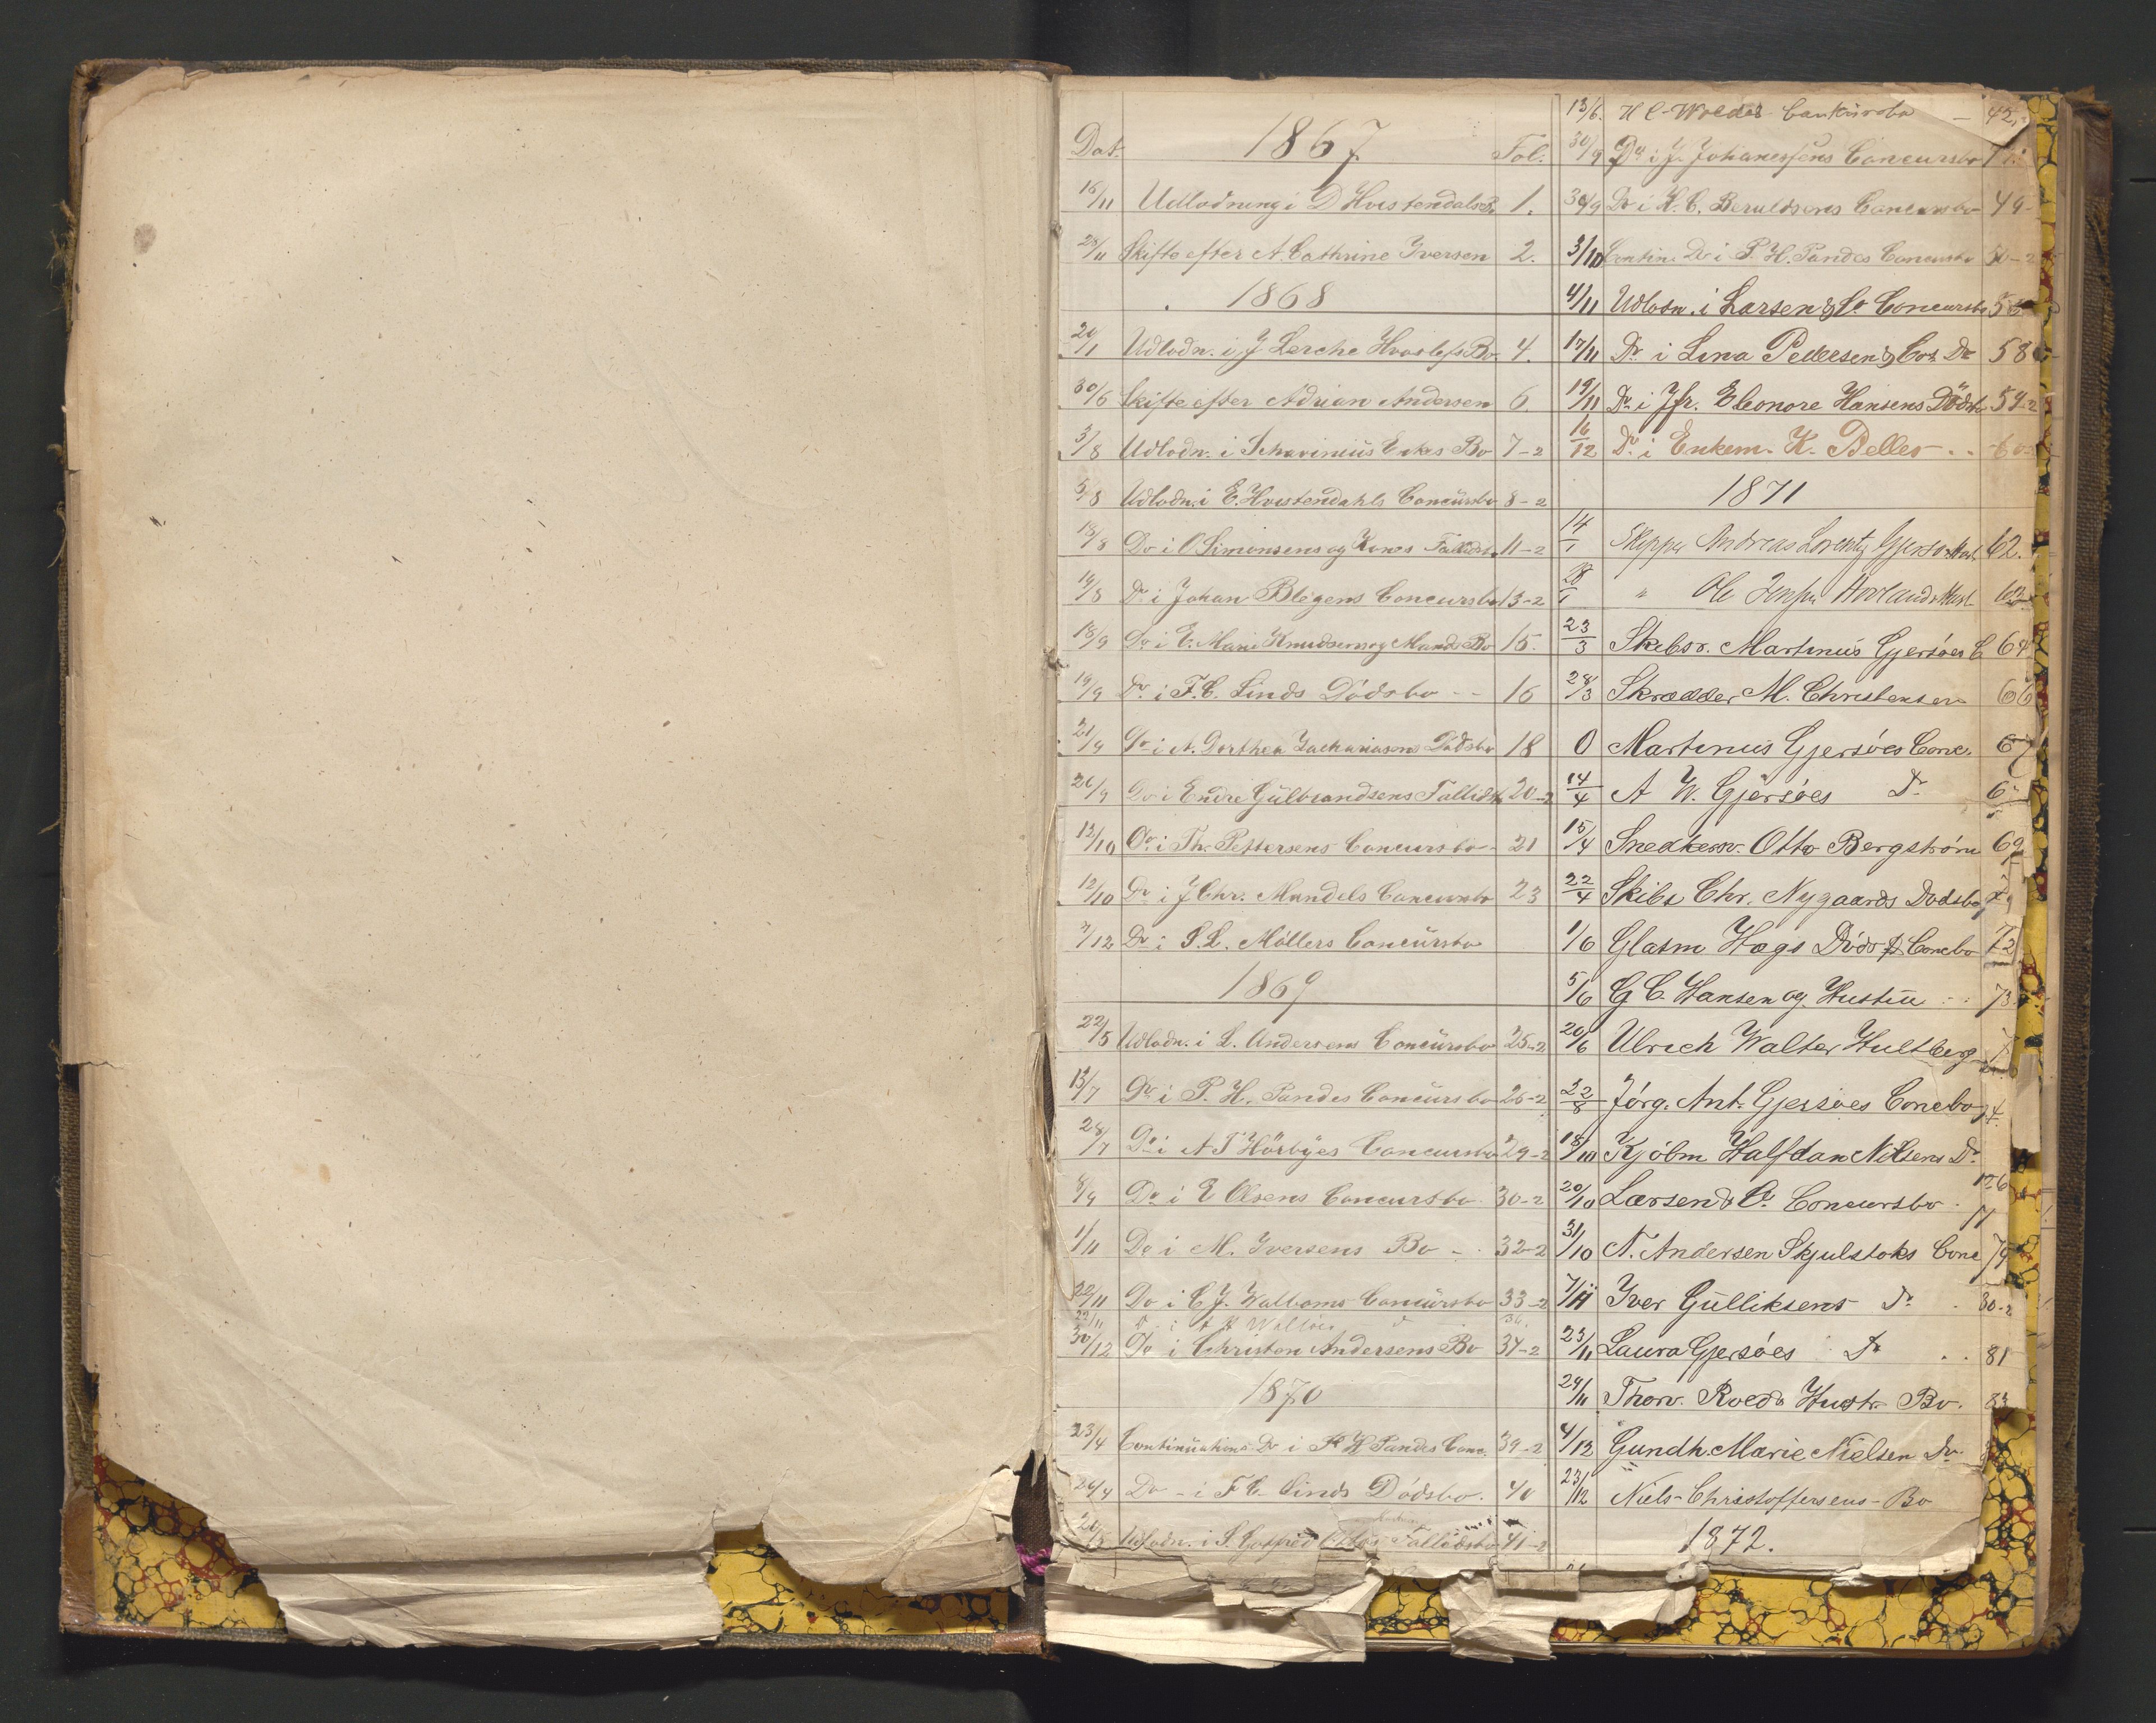 Dat. 1867 Fol.
16/11 Udlodning i D Hvistendals B. 1.
23/11 Skifte efter A. Cathrine Iversen 2.
1868
20/1 Udlodn. i J Lerche Hvoslefs Bo 4.
30/6 Skifte efter Adrian Andersen 6.
3/8 Udlodn. i Enkes Bo 7-2
5/8 Udlodn. i E. Hvistendahls Concursbo 8-2
18/8 Do i O Simonsens og Kones 11-2
19/8 Do i Johan Blegens Concursbo 13-2
18/9 Do i E. Marie Knudsens og Mands Bo 15.
19/9 Do i F. C. Linds Dödsbo -- 16
21/9 Do i A. Dorthea Zachariasens Dödsbo 18
26/9 Do i Endre Gulbrandsens 20-2
12/10 Do i Th. Pettersens Concursbo - 21
12/10 Do i J Chr. Mandels Concursbo 23
7/12 Do i S. L. Möllers Concursbo
1869
22/5 Udlodn. i L. Andersens Concursbo 25-2
13/7 Do i P. H. Sandes Concursbo 26-2
28/7 Do i A T Hörbyes Concursbo 29-2
8/9 Do i E Olsens Concursbo 30-2
1/11 Do i M. Iversens Bo - . 32-2
22/11 Do i C J. Walboms Concursbo 33-2
22/11
30/12 Do i Christen Andersens Bo 37-2
1870
23/4 Continuations Do i P H Sandes Conc. 39-2
26/4 Do - i F C. Linds Dódsbo. 40
Udlodn. i S. Fallidsbo 41-2
13/6. H C. Wolds - 42.
30/9 Do i J. Johanessens Concursbo
30/9 Do i H. C. Beruldsens Concursbo 49-
3/10 Contin. Do i P. H. Sandes Concursbo
4/11 Udlodn. i Larsen & Co. Concursbo
17/11 Do i Lina Pettersen & Cos. Do 58
19/11 Do i Jfr. Eleonore Hansens Dödsbo 59-2
16/12 Do i Enkem. K. Belles - . . 60
1871
14/1 Skipper Andreas Lorentz 62.
28/1 " Ole
23/3 Skibsr. Martinus Gjersöes C. 64
28/3 Skrædder M. Christensen 66
0 Martinus Gjersóes Conc. 67
14/4 A W. Gjersóes Do
15/4 Snedkersv. Otto Bergstróm 69
22/4 Skibs Chr. Nygaards Dodsbo
1/6 Glasm Hægs Dóds & Concbo 72
5/6 G C. Hansen og Hustru . . 73
20/6 Ulrich Walter Hultberg
22/8 Jórg. Ant. Gjersóes Concbo
18/10 Kjóbm Halfdan Nilsens Do
20/10 Larsen & Co. Concursbo . 77
31/10 N. Andersen Skjulstoks Conc 79
7/11 Iver Gulliksens Do . 80-2
23/11 Laura Gjersóes Do . . 81
29/11 Thorv. Roeds Hustr. Bo. 83
4/12 Gundh. Marie Nielsen Do
23/12 Niels Christoffersens - Bo
1872.